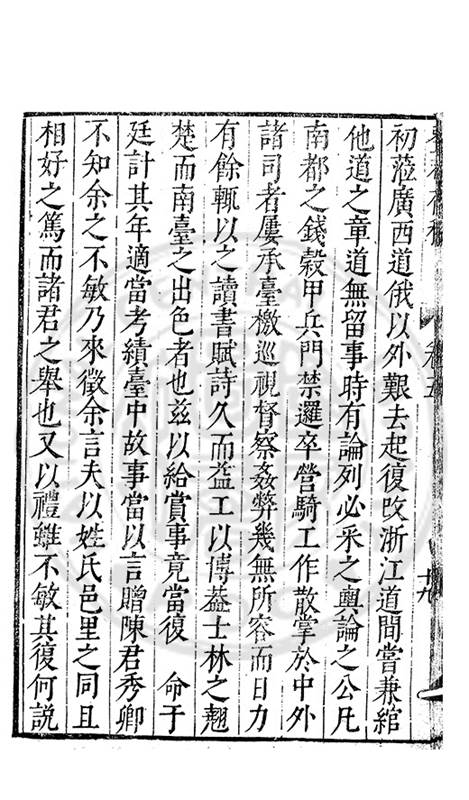 卷五
十九
初蒞廣西道俄以外艱去起復改浙江道間嘗兼綰
他道之章道無留事時有論列必采之輿論之公凡
南都之錢榖甲兵門禁邏卒營騎工作散掌於中外
諸司者屢承臺檄巡視督察姦弊幾無所容而日力
有餘輒以之讀書賦詩久而益工以博葢士林之翹
楚而南臺之出色者也兹以給賞事竟當復　命于
廷計其年適當考績臺中故事當以言贈陳君秀卿
不知余之不敏乃來徵余言夫以姓氏邑里之同且
相好之篤而諸君之舉也又以禮雖不敏其復何説